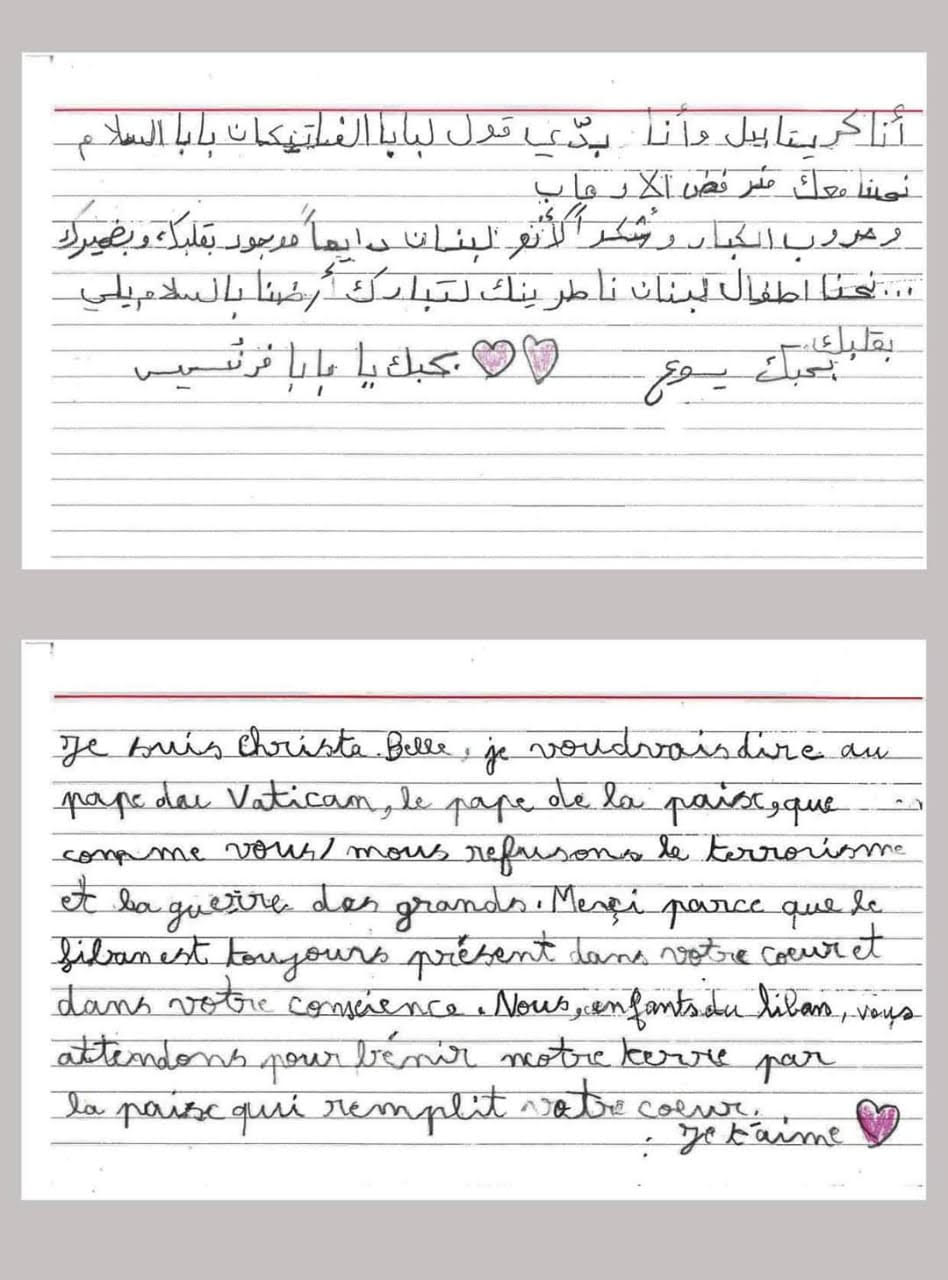 أنا كريستابيل وأنا بدّي قول لبابا الفاتيكان بابا السلام
نحنا معك منرفض الارهاب
وحروب الكبار وشكراً لأنّو لبنان دايماً موجود بقلبك، وبضميرك
...نحنا اطفال لبنان ناطرينك لتبارك أرضنا بالسلام يلي
بقلبك.
بحبك يسوع ♥♥ بحبك يا بابا فرنسيس
Je suis Christa Belle, je voudrais dire au
pape du Vatican, le pape de la paix, que
comme vous, nous refusons le terrorisme
et la guerre des grands. Merçi parce que le
liban est toujours présent dans votre coeur et
dans votre conscience. Nous, enfants du liban, vous
attendons pour bénir notre terre par
la paix qui remplit votre coeur.
Je t'aime ♥